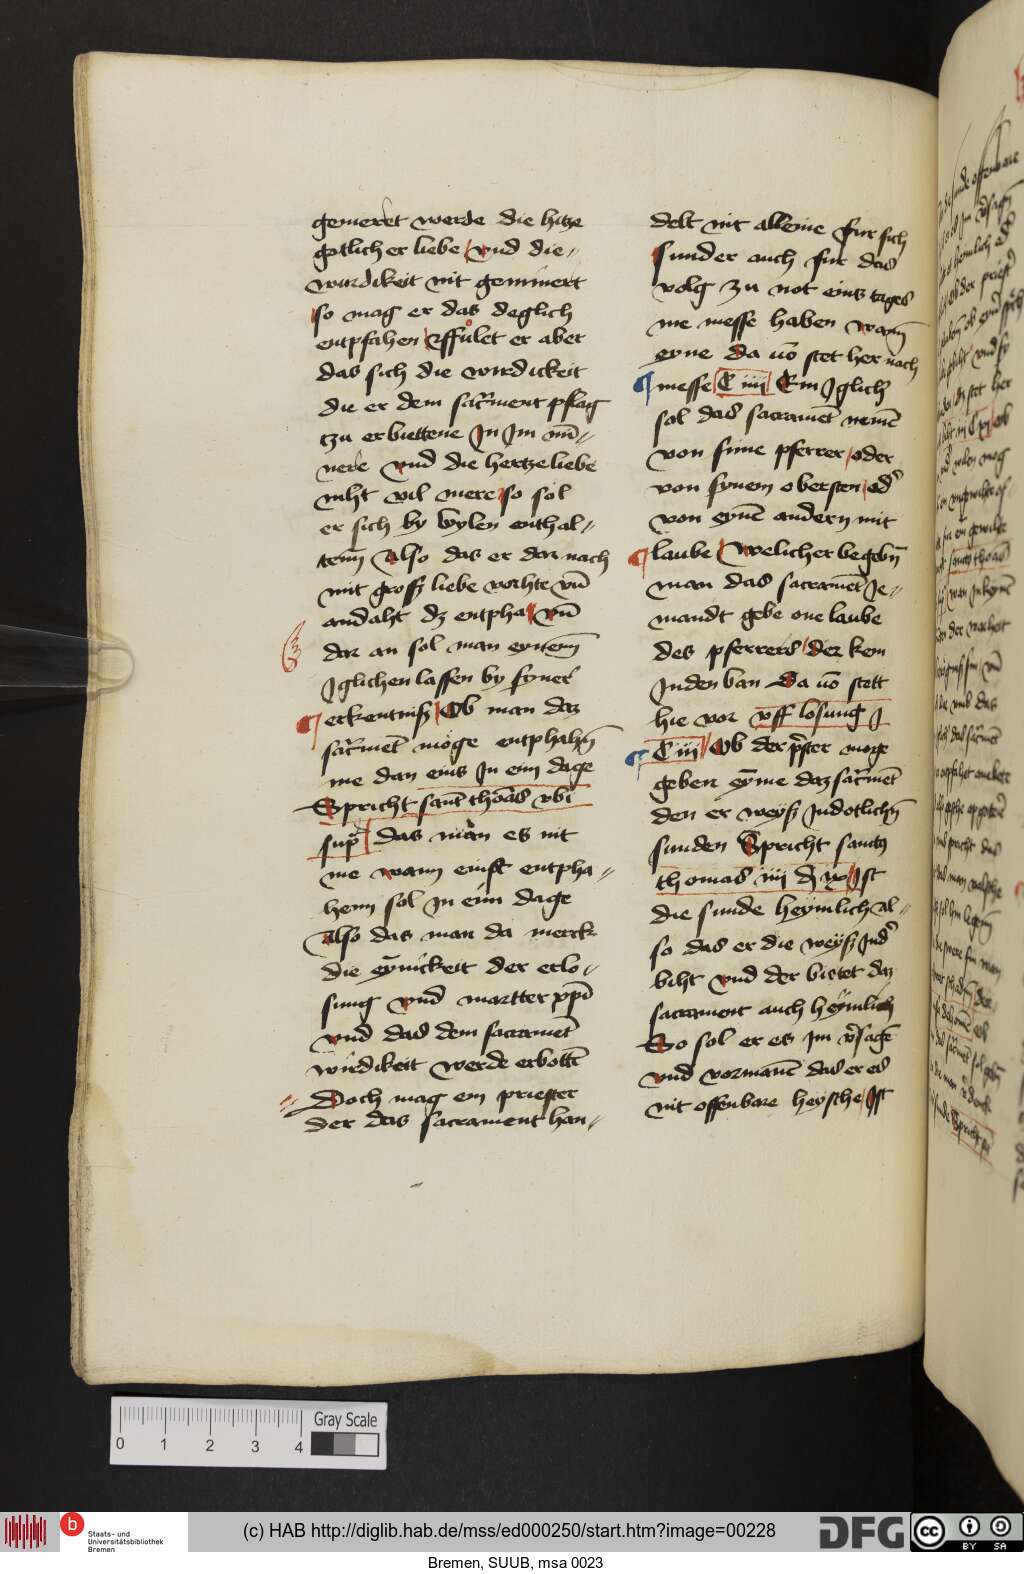 gemeret werde die hitze
gotlicher liebe vnd die⸗
wurdikeit nit geminert
so mag er das deglich
entpfahen Effůlet er aber
das sich die wirdickeit
die er dem sac̄ment pflag
tzu erbiettene In Im mī⸗
nere vnd die hertze liebe
niht vil mere so sol
er sich by wylen enthal⸗
tenn Also das er dar nach
mit grosß liebe vorhte vn̄
andaht dz entpha vn̄
dar an sol man eynem
Iglichen lassen by syner
erkentniß Ob man daz
sac̄ment möge entphahn̄
me dan eins In eim dage
Spricht sant thōas vbi
sup̄ das man es nit
me wann einst entpha⸗
henn sol In eim dage
Also das man da merck
die eynickeit der erlo⸗
sung vnd martter xp̄i
vnd das dem sacramēt
wirdikeit werde erbottē
Doch mag ein priester
der das sacrament han⸗
delt nit alleine fur sich
sunder auch fur das
volg zu not eins tages
me messe haben wann
eyne da vō stet her nach
messe C iiii Ein Iglich
sol das sacramēt nemē
von sime pferrer oder
von synem obersten od̄
von eynē andern mit
laube Welicher begebn̄
man das sacramēt Ie⸗
mandt gebe one laube
des pferrers der kem
In den ban Da vō stett
hie vor vff losung I
C iii Ob der p̄ster moge
geben eyme daz sac̄mēt
den er weyß In dotlichn̄
sunden Spricht sanctus
thomas iiii d̄ ix Ist
die sunde heymlich Al⸗
so das er die weyß In d̄
biht vnd der bietet daz
sacrament auch heymlich
So sol er es Im v̄sagē
vnd vormanē das er es
nit offenbare heysche Ist
0 1 2 3 4
Gray Scale
b Staats- und
Universitätsbibliothek
Bremen
(c) HAB http://diglib.hab.de/mss/ed000250/start.htm?image=00228
DFG
cc BY SA
Bremen, SUUB, msa 0023